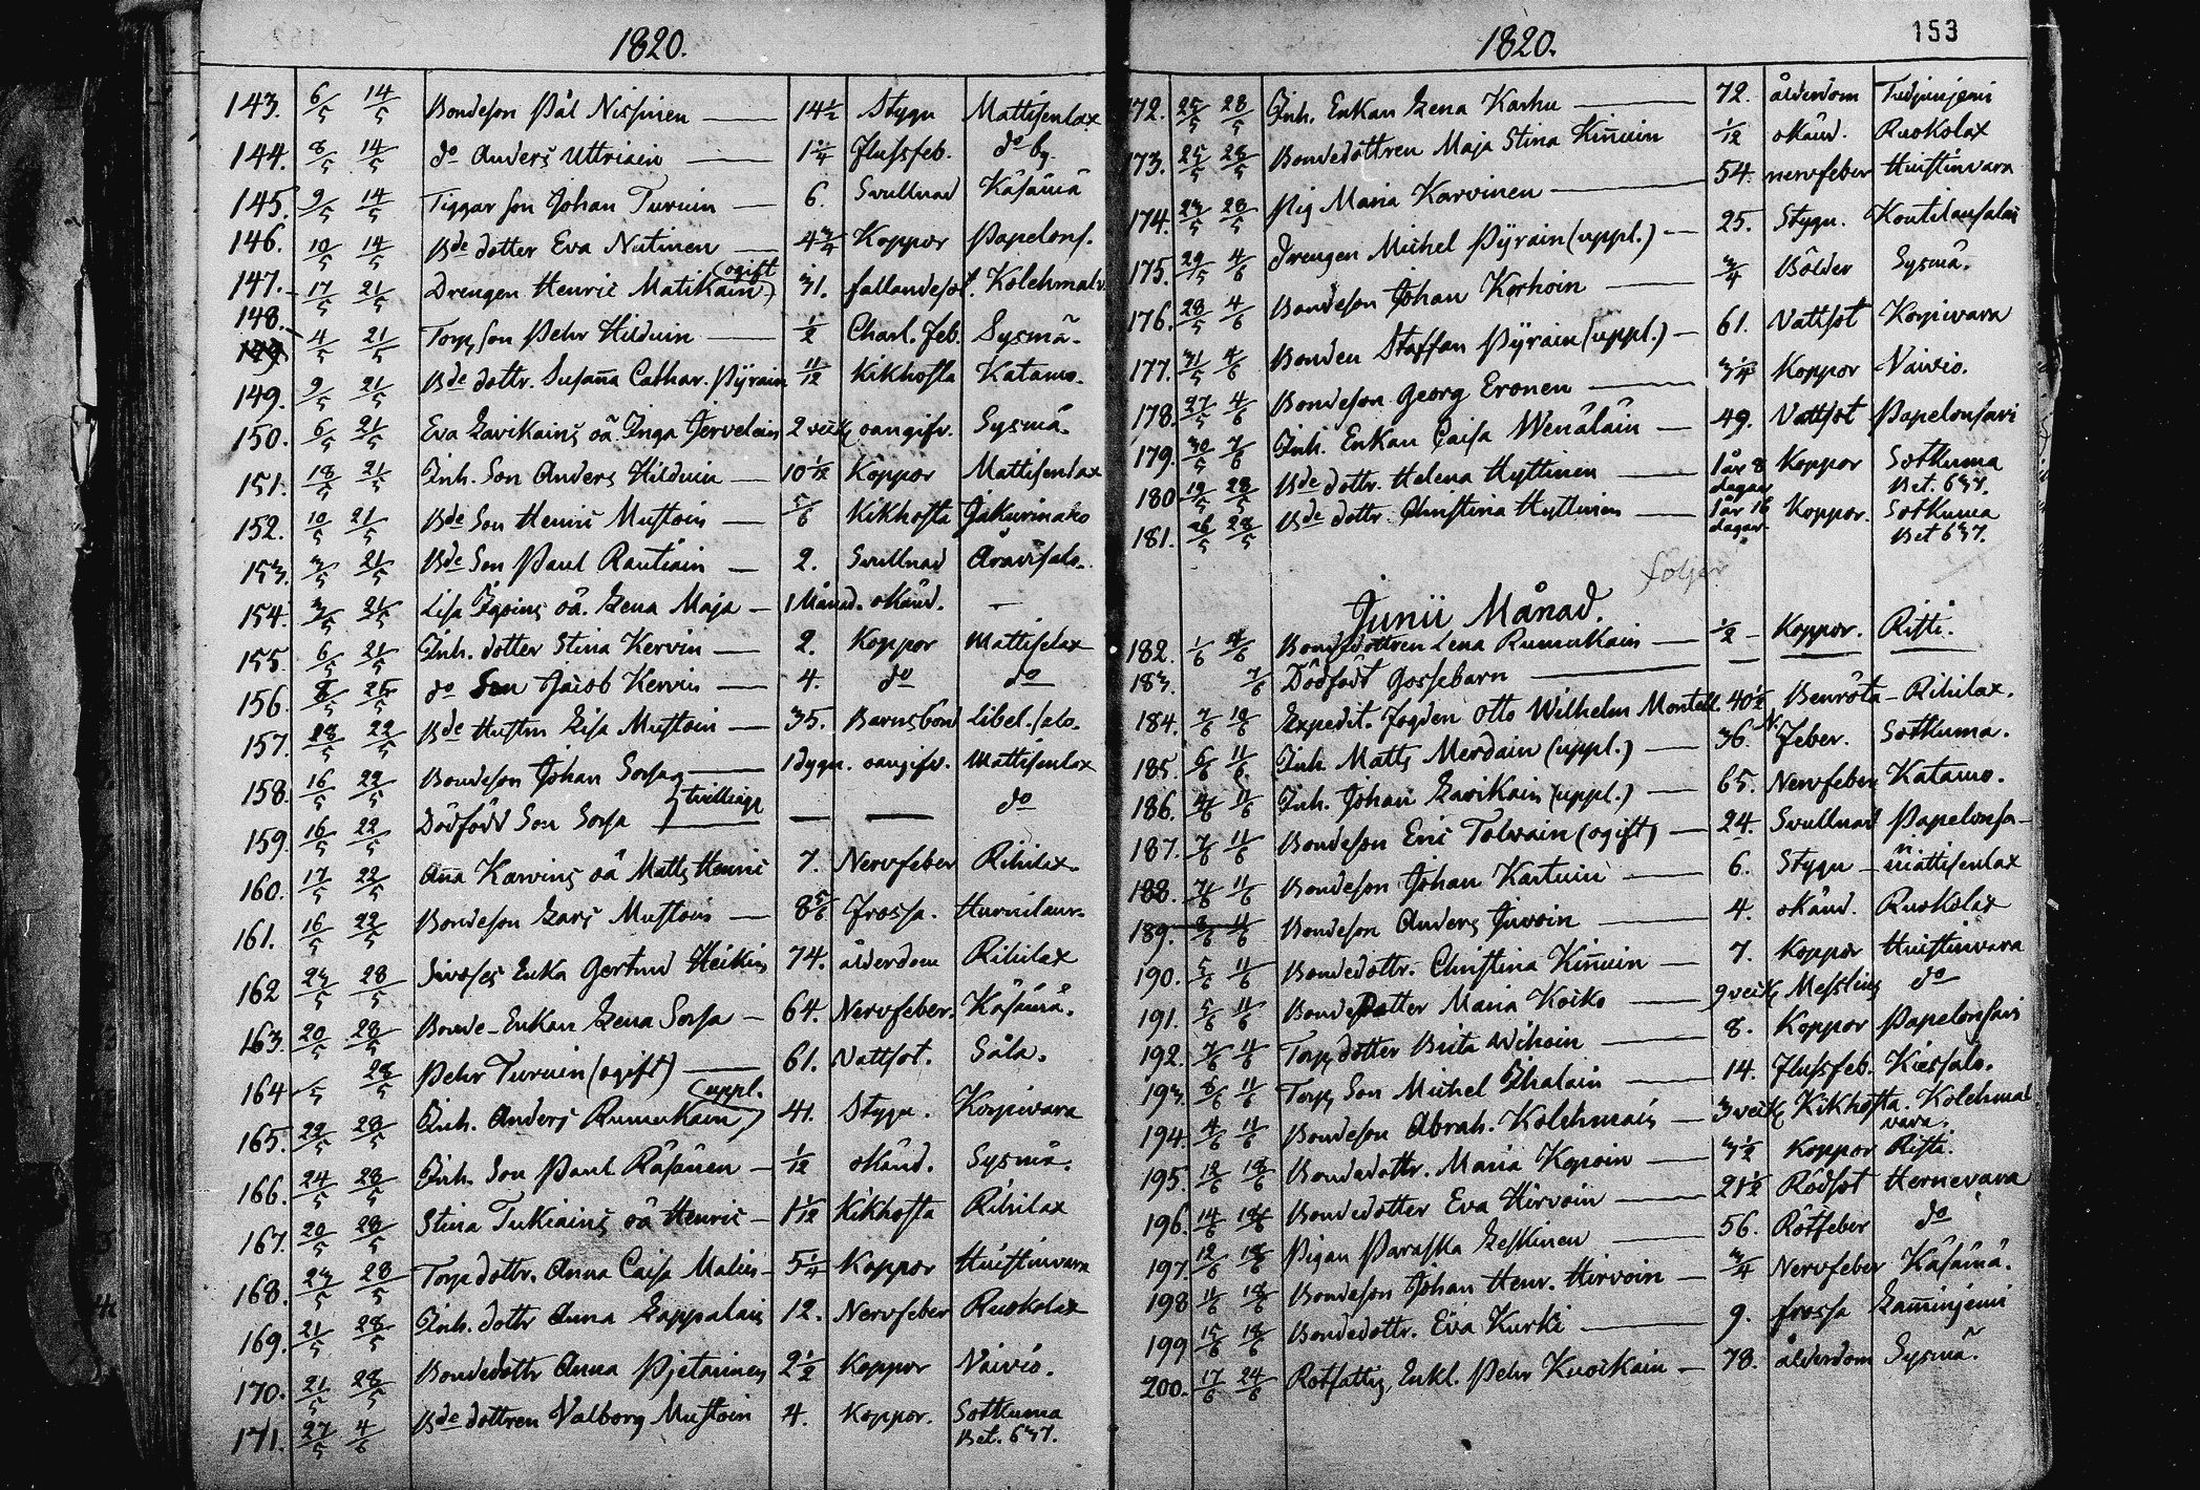 1820.
143. 6/5 14/5 Bondeson Pål Nissinen — 14½ Stygn Mattisenlax
144. 8/5 14/5 do Anders Uttriain — 1¼ Flussfeb. do by.
145. 9/5 14/5 Tiggar son Johan Turuin — 6. Svullnad Käsämä
146. 10/5 14/5 Bde dotter Eva Nutinen — 4¾ Koppor Papelons.
147. 17/5 21/5 Drengen Henric Matikain (ogift) 31. fallandesot. Kolehmalv
148. 4/5 21/5 Torp. son Pehr Hilduin — ½ Charl. feb. Sysmä.
149. 9/5 21/5 Bde dottr. Susanna Cathar. Pyrain 11/12 Kikhosta Katamo.
150. 6/5 21/5 Eva Lavikains oä. Inga Jervelain 2 veck. oangifv. Sysmä.
151. 18/5 21/5 Inh. Son Anders Hilduin — 10 1/12 Koppor Mattisenlax
152. 10/5 21/5 Bde Son Henric Mustoin — 5/6 Kikhosta Jakurinaho
153. 3/5 21/5 Bde Son Paul Rautiain — 2. Svullnad Aravisalo.
154. 3/5 21/5 Lisa oä. Lena Maja — 1 Månad. okänd. —
155. 6/5 21/5 Inh. dotter Stina Kervin — 2. Koppor Mattiselax
156. 8/5 25/5 do Son Jacob Kervin — 4. do do
157. 18/5 22/5 Bde Hustru Lisa Mustoin — 35. Barnsbörd Libel.salo.
158. 16/5 22/5 Bondeson Johan Sorsa — 1 dygn. oangifv. Mattisenlax
tvillingr
159. 16/5 22/5 Dödfödd Son Sorsa — — — do
160. 17/5 22/5 Anna Karvins oä Matts Henric 7. Nervfeber Rihilax.
161. 16/5 22/5 Bondeson Lars Mustoin — 8 5/6 frossa. Hurnilaur.
162 23/5 28/5 Enka Gertrud Heikin 74. ålderdom Rihilax
163. 20/5 28/5 Bonde-Enkan Lena Sorsa — 64. Nervfeber. Käsämä.
164 /5 28/5 Pehr Turuin (ogift) — 61. Vattsot. Såla.
165. 22/5 28/5 Inh. Anders Rumukain (uppl.) 41. Stygn. Korpivara
166. 24/5 28/5 Inh. Son Paul Räsänen — 1/12 okänd. Sysmä.
167. 20/5 28/5 Stina Tukiains oä Henric — 1 1/12 Kikhosta Rihilax
168. 23/5 28/5 Torp dottr. Anna Caisa Malin — 5¼ Koppor Huistinvara
169. 21/5 28/5 Inh. dottr Anna Lappalain 12. Nervfeber Ruokolax
170. 21/5 28/5 Bondedottr Anna Pjetarinen 2½ Koppor Vaivio.
171. 27/5 4/6 Bde dottren Valborg Mustoin 4. Koppor. Sotkuma
Bet. 637.
153
1820.
172. 25/5 28/5 Inh. Enkan Lena Karhu — 72. ålderdom
173. 25/5 28/5 Bondedottren Maja Stina Kinnuin 1/12 okänd. Ruokolax
174. 23/5 28/5 Pig Maria Karvinen — 54 nervfeber Huistinvara
175. 29/5 4/6 Drengen Michel Pyrain (uppl.) — 25. Stygn. Kontilansalai
176. 28/5 4/6 Bondeson Johan Korhoin — ¾ Bölder Sysmä.
177. 31/5 4/6 Bonden Staffan Pyrain (uppl.) — 61. Vattsot Korpivara
178. 27/5 4/6 Bondeson Georg Eronen — 3¼ Koppor Vaivio.
179. 30/5 7/6 Inh. Enkan Caisa Wenäläin — 49. Vattsot Papelonsari
180 19/5 28/5 Bde dottr. Helena Hyttinen — 1 år 8 dagar Koppor Sotkuma
Bet. 637.
181. 26/5 28/5 Bde dottr. Christina Hyttinen — 1 år 16 dagar. Koppor. Sotkuma
Bet 637.
följer
Junii Månad.
182. 1/6 4/6 Bondedottren Lena Rumukain — ½ — Koppor. Risti.
183. 7/6 Dödfödt Gossebarn —
184. 7/6 10/6 Expedit. Fogden Otto Wilhelm Montell 40½ Benröta — Rihilax.
185. 6/6 11/6 Inh. Matts Merdain (uppl.) — 36. N. Feber. Sotkuma.
186. 4/6 11/6 Inh. Johan Lavikain (uppl.) — 65. Nervfeber Katamo.
187. 7/6 11/6 Bondeson Eric Tolvain (ogift) — 24. Svullnad Papelonsa-
188. 7/6 11/6 Bondeson Johan Kartuin — 6. Stygn — Mattisenlax
189. 8/6 11/6 Bondeson Anders Juvoin — 4. okänd. Ruokolax
190. 5/6 11/6 Bondedottr. Christina Kinnuin — 7. Koppor Huistinvara
191. 5/6 11/6 Bondedotter Maria Koiko — 9 veck. Messling do
192. 7/6 11/6 Torp. dotter Brita Wihoin — 8. Koppor Papelonsari
193. 8/6 11/6 Torp. Son Michel Ihalain — 14. Flussfeb. Kiessalo.
194. 4/6 11/6 Bondeson Abrah. Kolehmain — 3 veck. Kikhosta. Kolehmal
vara.
195. 12/6 18/6 Bondedottr. Maria Kopoin — 3½ Koppor Risti.
196. 14/6 18/6 Bondedotter Eva Hirvoin — 21½ Rödsot Hernevara
197. 12/6 18/6 Pigan Paraska Leskinen — 56. Rötfeber do
198 11/6 18/6 Bondeson Johan Henr. Hirvoin — ¾ Nervfeber Käsämä.
199 15/6 18/6 Bondedottr. Eva Kurki — 9. frossa Lamminjemi
200. 17/6 24/6 Rotfattig, Enkl. Pehr Kuoikain — 78. ålderdom Sysmä.